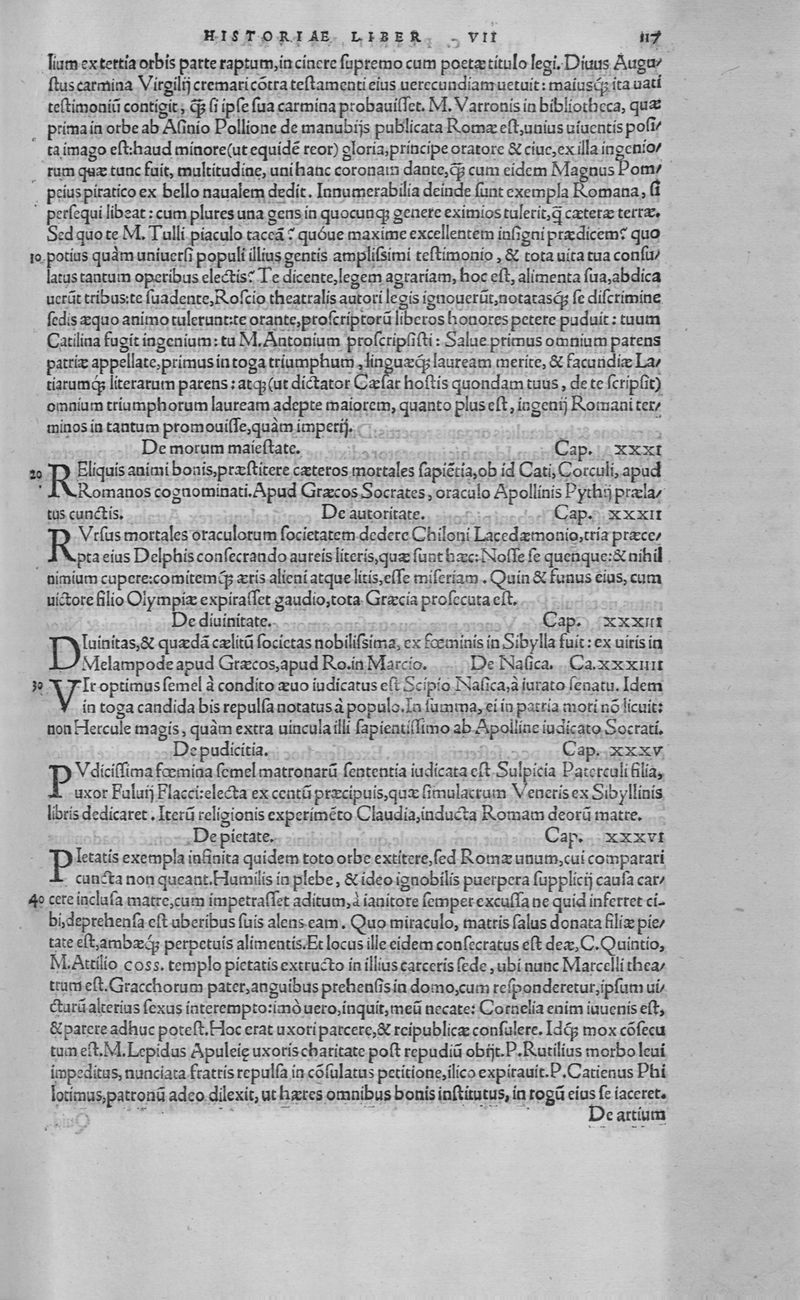 HISTORIAE LIBER VII 117
lium ex tertia orbis parte raptum,in cinere ſupremo cum poetæ titulo legi. Diuus Augu/
ſtus carmina Virgilij cremari cõtra teſtamenti eius uerecundiam uetuit: maiusq́; ita uati
teſtimoniũ contigit, q̃; ſi ipſe ſua carmina probauiſſet. M. Varronis in bibliotheca, quæ
prima in orbe ab Aſinio Pollione de manubijs publicata Romæ eſt,unius uiuentis poſi/
ta imago eſt:haud minore(ut equidẽ reor) gloria,principe oratore & ciue,ex illa ingenio/
rum quæ tunc fuit, multitudine, uni hanc coronam dante,q̃; cum eidem Magnus Pom/
peius piratico ex bello naualem dedit. Innumerabilia deinde ſunt exempla Romana, ſi
perſequi libeat: cum plures una gens in quocunq; genere eximios tulerit,q̃ cæteræ terræ.
Sed quo te M. Tulli piaculo taceã? quóue maxime excellentem inſigni prædicem? quo
10 potius quàm uniuerſi populi illius gentis ampliſsimi teſtimonio, & tota uita tua conſu/
latus tantum operibus electis? Te dicente,legem agrariam, hoc eſt, alimenta ſua,abdica
uerũt tribus:te ſuadente,Roſcio theatralis autori legis ignouerũt,notatasq́; ſe diſcrimine
ſedis æquo animo tulerunt:te orante,proſcriptorũ liberos honores petere puduit: tuum
Catilina fugit ingenium: tu M. Antonium proſcripſiſti: Salue primus omnium parens
patriæ appellate,primus in toga triumphum, linguæq́; lauream merite, & facundiæ La/
tiarumq́; literarum parens: atq;(ut dictator Cæſar hoſtis quondam tuus, de te ſcripſit)
omnium triumphorum lauream adepte maiorem, quanto plus eſt, ingenij Romani ter/
minos in tantum promouiſſe,quàm imperij.
De morum maieſtate. Cap. XXXI
20 REliquis animi bonis,præſtitere cæteros mortales ſapiẽtia,ob id Cati, Corculi, apud
Romanos cognominati.Apud Græcos Socrates, oraculo Apollinis Pythij præla/
tus cunctis. De autoritate. Cap. XXXII
RVrſus mortales oraculorum ſocietatem dedere Chiloni Lacedæmonio,tria præce/
pta eius Delphis conſecrando aureis literis,quæ ſunt hæc: Noſſe ſe quenque:& nihil
nimium cupere:comitemq́; æris alieni atque litis,eſſe miſeriam. Quin & funus eius, cum
uictore filio Olympiæ expiraſſet gaudio,tota Græcia proſecuta eſt.
De diuinitate. Cap. XXXIII
DIuinitas,& quædã cælitũ ſocietas nobiliſsima, ex fœminis in Sibylla fuit: ex uiris in
Melampode apud Græcos,apud Ro.in Marcio. De Naſica. Ca.XXXIIII
30 VIr optimus ſemel à condito æuo iudicatus eſt Scipio Naſica,à iurato ſenatu. Idem
in toga candida bis repulſa notatus à populo.In ſumma, ei in patria mori nõ licuit:
non Hercule magis, quàm extra uincula illi ſapientiſſimo ab Apolline iudicato Socrati.
De pudicitia. Cap. XXXV
PVdiciſſima fœmina ſemel matronarũ ſententia iudicata eſt Sulpicia Paterculi filia,
uxor Fuluij Flacci:electa ex centũ præcipuis,quæ ſimulacrum Veneris ex Sibyllinis
libris dedicaret. Iterũ religionis experimẽto Claudia,inducta Romam deorũ matre.
De pietate. Cap. XXXVI
PIetatis exempla infinita quidem toto orbe extitere,ſed Romæ unum,cui comparari
cuncta non queant.Humilis in plebe, & ideo ignobilis puerpera ſupplicij cauſa car/
40 cere incluſa matre,cum impetraſſet aditum,à ianitore ſemper excuſſa ne quid inferret ci-
bi,deprehenſa eſt uberibus ſuis alens eam. Quo miraculo, matris ſalus donata filiæ pie/
tate eſt,ambæq́; perpetuis alimentis.Et locus ille eidem conſecratus eſt deæ,C.Quintio,
M.Attilio coss. templo pietatis extructo in illius carceris ſede, ubi nunc Marcelli thea/
trum eſt.Gracchorum pater,anguibus prehenſis in domo,cum reſponderetur,ipſum ui/
cturũ alterius ſexus interempto:imò uero,inquit,meũ necate: Cornelia enim iuuenis eſt,
& parere adhuc poteſt.Hoc erat uxori parcere,& reipublicæ conſulere. Idq́; mox cõſecu
tum eſt.M.Lepidus Apuleię uxoris charitate poſt repudiũ obijt.P.Rutilius morbo leui
impeditus, nunciata fratris repulſa in cõſulatus petitione,ilico expirauit.P.Catienus Phi
lotimus,patronũ adeo dilexit, ut hæres omnibus bonis inſtitutus, in rogũ eius ſe iaceret.
De artium